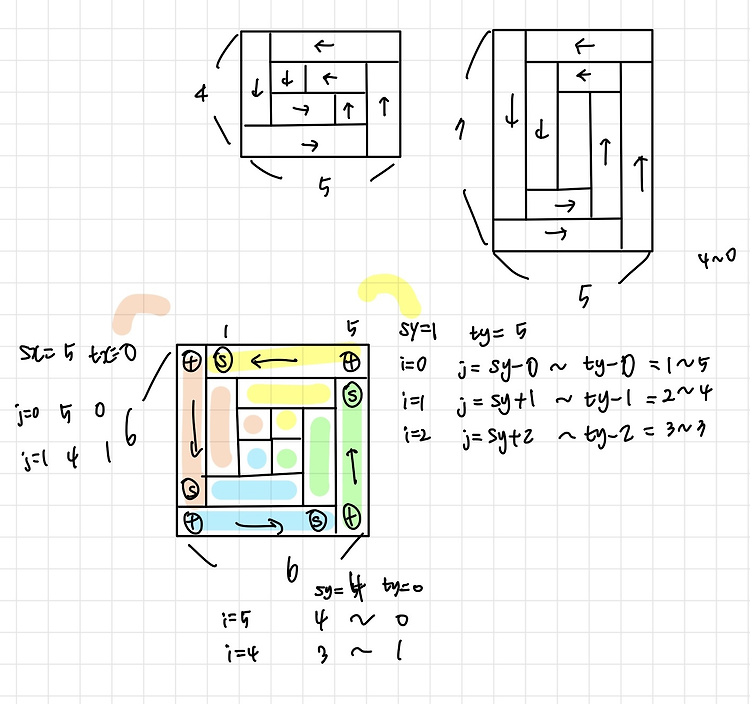 ←
↓ ↓ ←
4 → ↑ ↑
→
5
←
←
↓ ↓ ↑ ↑
→
→
5
4~0
1 5
sx=5 tx=0
j=0 5 0
j=1 4 1
6
t s ← t
s
↓ ↑
s
t → s t
6
sy=1 ty=5
i=0 j=sy-0 ~ ty-0 =1~5
i=1 j=sy+1 ~ ty-1 =2~4
i=2 j=sy+2 ~ ty-2 = 3~3
sy=4 ty=0
i=5 4 ~ 0
i=4 3 ~ 1